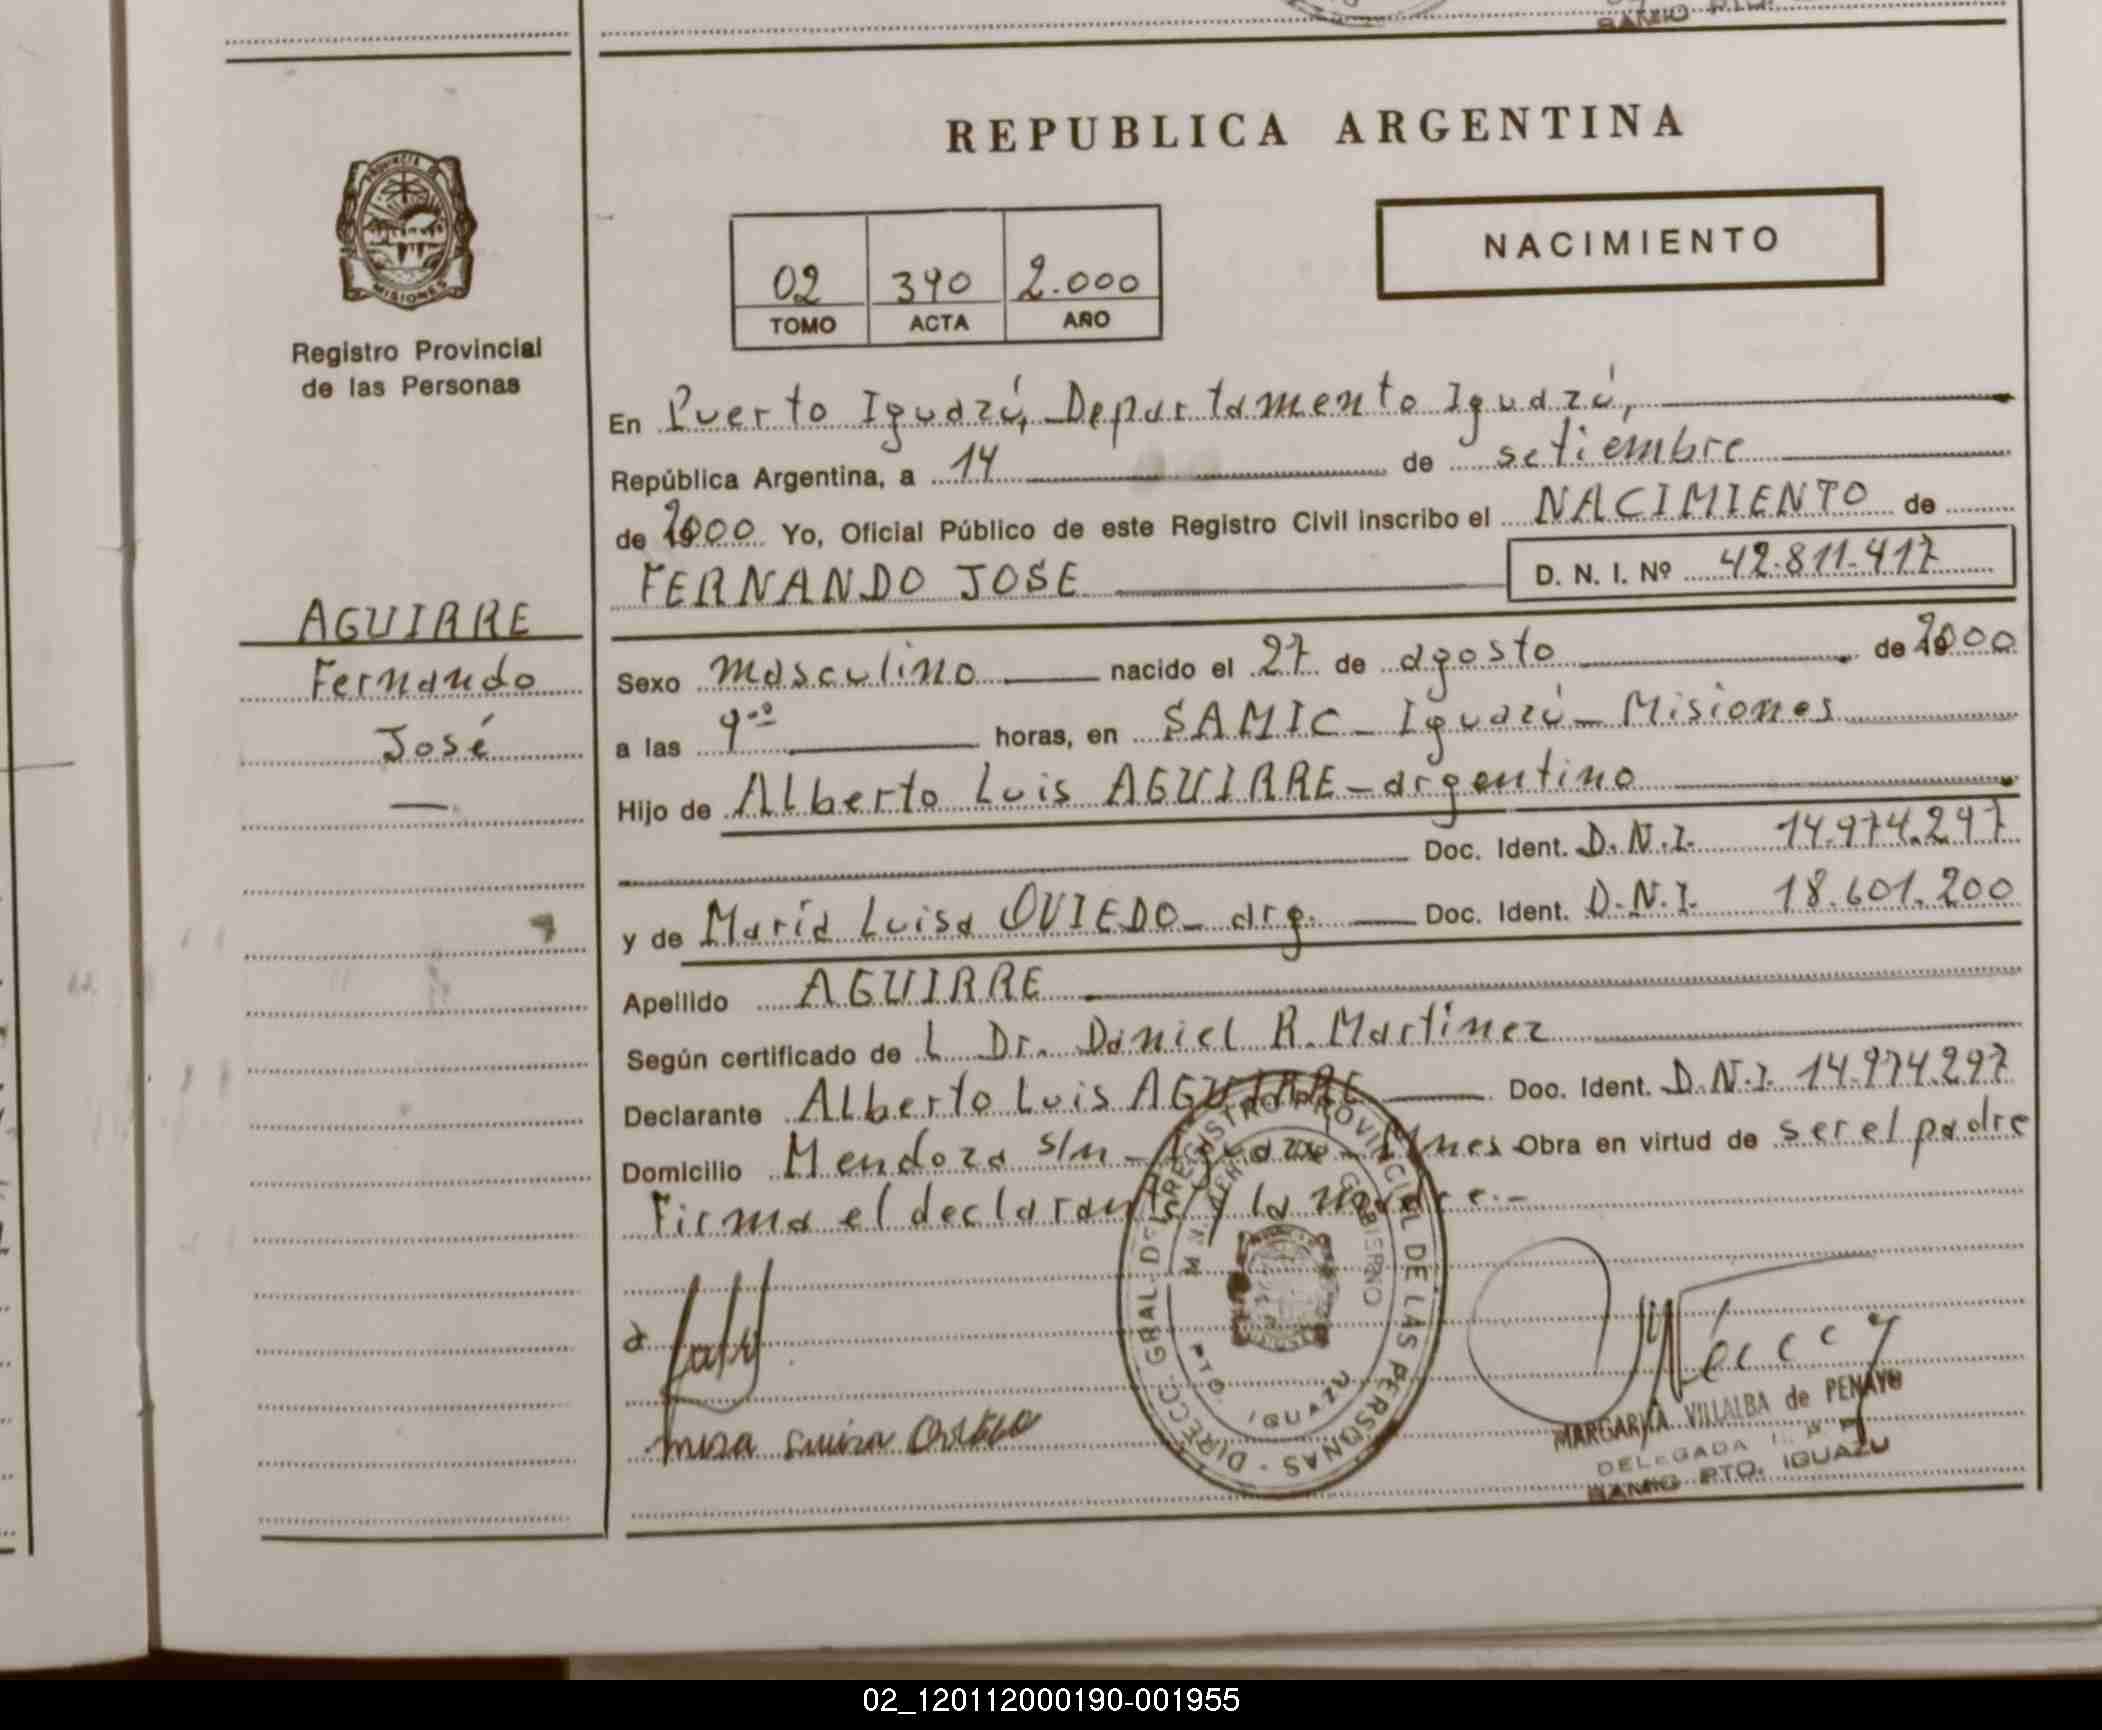 REPUBLICA ARGENTINA
NACIMIENTO
02 390 2.000
TOMO ACTA AÑO
PROVINCIA DE
MISIONES
Registro Provincial
de las Personas
AGUIRRE
Fernando
José
En Puerto Iguazú, Departamento Iguazú,
República Argentina, a 14 de setiembre
de 2000 Yo, Oficial Público de este Registro Civil inscribo el NACIMIENTO de
FERNANDO JOSE D. N. I. Nº 42.811.417
Sexo masculino nacido el 27 de agosto de 2000
a las horas, en SAMIC - Iguazú - Misiones
Hijo de Alberto Luis AGUIRRE - argentino
Doc. Ident. D.N.I. 14.974.297
y de María Luisa OVIEDO - arg. Doc. Ident. D.N.I. 18.601.200
Apellido AGUIRRE
Según certificado de L Dr. Daniel R. Martínez
Declarante Alberto Luis AGUIRRE Doc. Ident. D.N.I. 14.974.297
Domicilio Mendoza s/n - Iguazú - Mnes Obra en virtud de ser el padre
Firma el declarante y la madre.-
DIRECC. GRAL. DEL REGISTRO PROVINCIAL DE LAS PERSONAS
GOBIERNO
PTO. IGUAZU
MARGARITA VILLALBA de PENAYO
DELEGADA
SAMIC PTO. IGUAZU
02_120112000190-001955